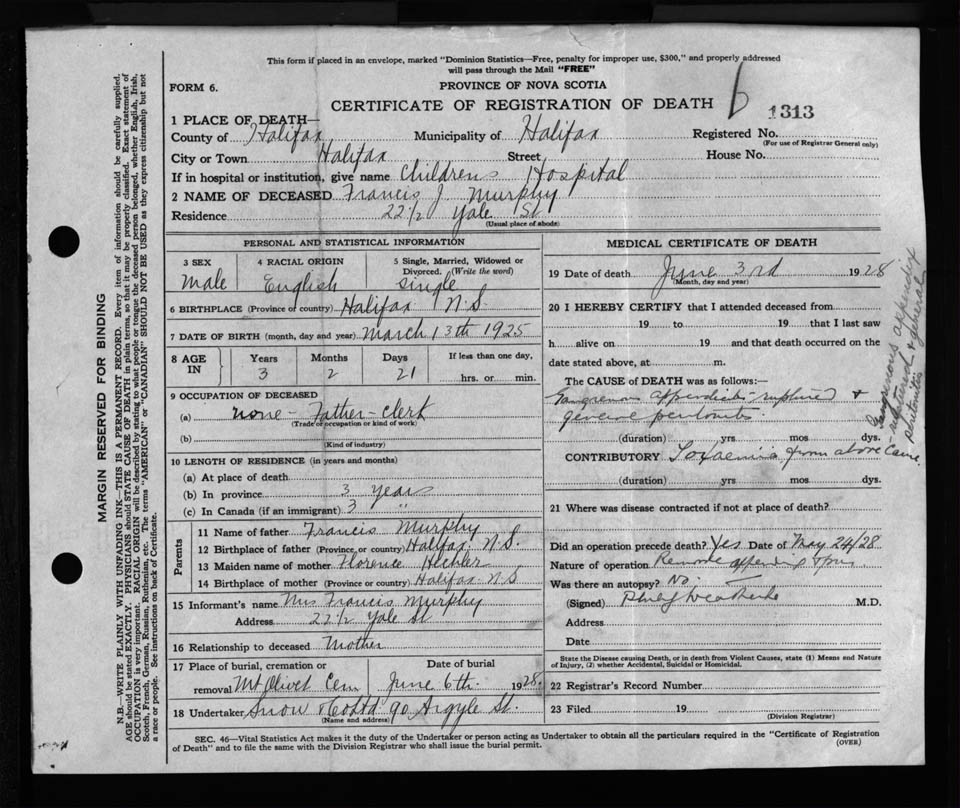 This form if placed in an envelope, marked "Dominion Statistics—Free, penalty for improper use, $300," and properly addressed
will pass through the Mail "FREE"
FORM 6.
PROVINCE OF NOVA SCOTIA
CERTIFICATE OF REGISTRATION OF DEATH
6
1313
1 PLACE OF DEATH—
County of Halifax Municipality of Halifax Registered No.
(For use of Registrar General only)
City or Town Halifax Street House No.
If in hospital or institution, give name Childrens Hospital
2 NAME OF DECEASED Francis J. Murphy
Residence 22½ Yale St
(Usual place of abode)
PERSONAL AND STATISTICAL INFORMATION
3 SEX 4 RACIAL ORIGIN 5 Single, Married, Widowed or
Divorced. (Write the word)
male English single
6 BIRTHPLACE (Province or country) Halifax N.S.
7 DATE OF BIRTH (month, day and year) March 13th 1925
8 AGE IN Years Months Days If less than one day,
3 2 21 hrs. or min.
9 OCCUPATION OF DECEASED
(a) none - Father - clerk
(Trade or occupation or kind of work)
(b)
(Kind of industry)
10 LENGTH OF RESIDENCE (in years and months)
(a) At place of death
(b) In province 3 years
(c) In Canada (if an immigrant) 3 "
Parents
11 Name of father Francis Murphy
12 Birthplace of father (Province or country) Halifax N.S.
13 Maiden name of mother Florence
14 Birthplace of mother (Province or country) Halifax N.S
15 Informant's name Mrs Francis Murphy
Address 22½ Yale St
16 Relationship to deceased Mother
17 Place of burial, cremation or Date of burial
removal Mt Olivet Cem June 6th 1928
18 Undertaker Snow & Co Ltd 90 Argyle St.
(Name and address)
MEDICAL CERTIFICATE OF DEATH
19 Date of death June 3rd 1928
(Month, day and year)
20 I HEREBY CERTIFY that I attended deceased from
19 to 19 that I last saw
h alive on 19 and that death occurred on the
date stated above, at m.
The CAUSE of DEATH was as follows:—
Gangrenous appendicitis - ruptured +
general peritonitis.
(duration) yrs. mos. dys.
CONTRIBUTORY Toxaemia from above cause
(duration) yrs. mos. dys.
Gangrenous appendix
- ruptured & general
peritonitis
21 Where was disease contracted if not at place of death?
Did an operation precede death? Yes Date of May 24/28
Nature of operation Remove
Was there an autopsy? No.
(Signed) M.D.
Address
Date
State the Disease causing Death, or in death from Violent Causes, state (1) Means and Nature
of Injury, (2) whether Accidental, Suicidal or Homicidal.
22 Registrar's Record Number
23 Filed 19
(Division Registrar)
SEC. 46—Vital Statistics Act makes it the duty of the Undertaker or person acting as Undertaker to obtain all the particulars required in the "Certificate of Registration
of Death" and to file the same with the Division Registrar who shall issue the burial permit. (OVER)
MARGIN RESERVED FOR BINDING
N.B.—WRITE PLAINLY WITH UNFADING INK—THIS IS A PERMANENT RECORD. Every item of information should be carefully supplied.
AGE should be stated EXACTLY. PHYSICIANS should STATE CAUSE OF DEATH in plain terms, so that it may be properly classified. Exact statement of
OCCUPATION is very important. RACIAL ORIGIN will be described by stating to what people or tongue the deceased person belonged, whether English, Irish,
Scotch, French, German, Russian, Ruthenian, etc. The terms "AMERICAN" or "CANADIAN" SHOULD NOT BE USED as they express citizenship but not
a race or people. See instructions on back of Certificate.